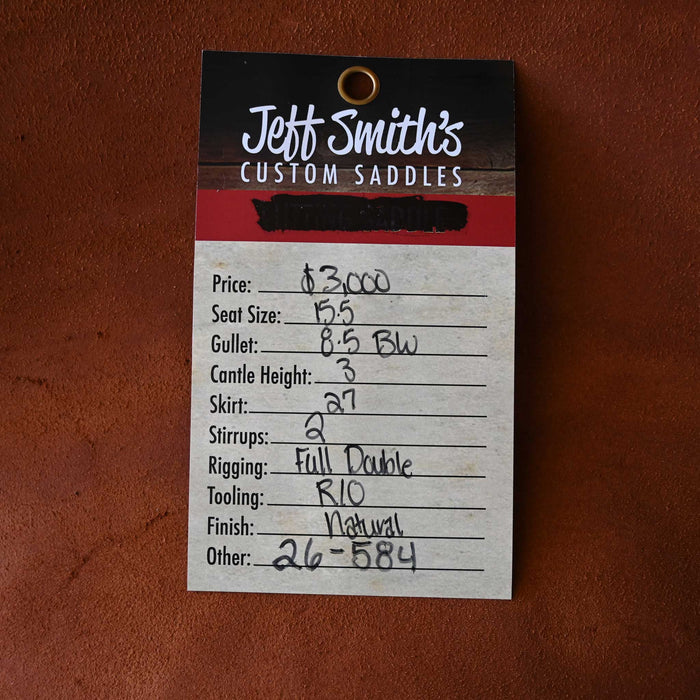 Jeff Smith's
CUSTOM SADDLES
Price: $3,000
Seat Size: 15.5
Gullet: 8.5 BW
Cantle Height: 3
Skirt: 27
Stirrups: 2
Rigging: Full Double
Tooling: RIO
Finish: Natural
Other: 26-584